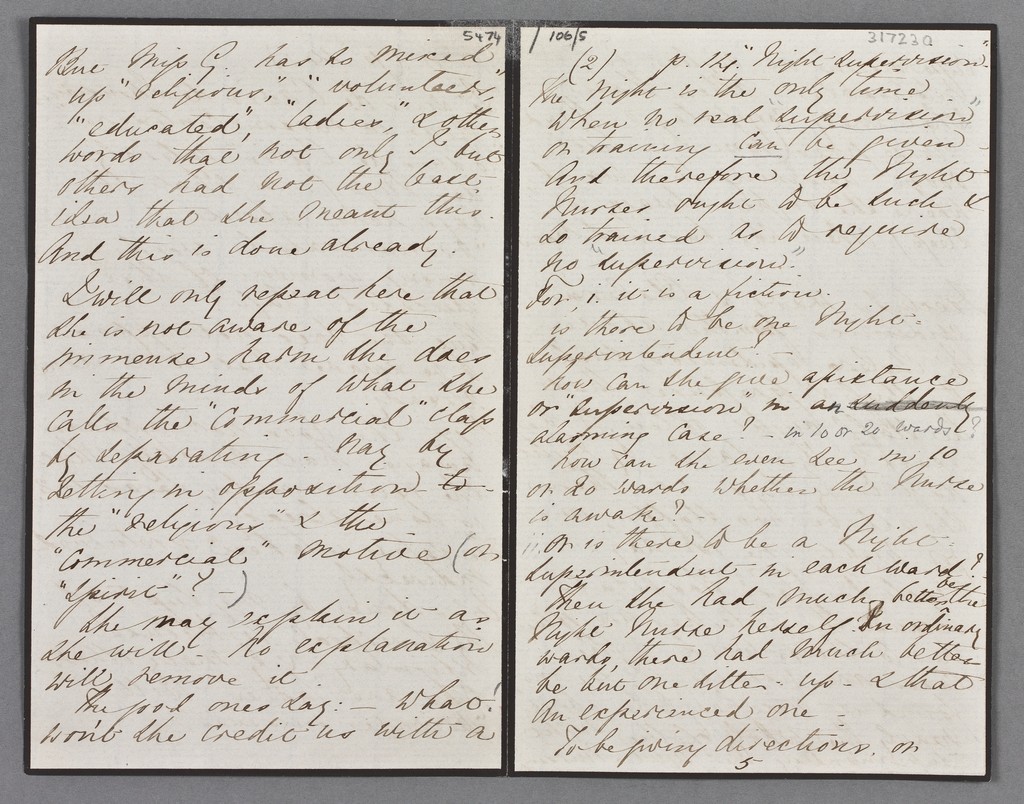 5474
But Miss G. has so mixed
up "religious," "volunteers,"
"educated", "ladies," & other
words that not only I but
others had not the least
idea that she meant this.
And this is done already.
I will only repeat here that
she is not aware of the
immense harm she does
in the minds of what she
calls the "Commercial" class
by separating - nay by
setting in opposition to
the "religious" & the
"Commercial" motive (or
"spirit"? -)
She may explain it as
she will - no explanation
will remove it
The good ones say: - what!
won't she credit us with a
106/5
317230
(2) p. 14. "Night Supervision."
The Night is the only time
when no real "supervision"
or training can be given -
And therefore the Night
Nurses ought to be such &
so trained as to require
no "supervision".
For, i. it is a fiction.
is there to be one Night-
Superintendent? -
how can she give assistance
or "supervision", in an suddenly
alarming case? - in 10 or 20 wards?
how can she even see in 10
or 20 wards whether the Nurse
is awake? -
ii. or is there to be a Night-
Superintendent in each ward? -
Then she had much better be the
Night Nurse herself In ordinary
wards, there had much better
be but one sitter-up - & that
an experienced one -
To be giving directions, or
5